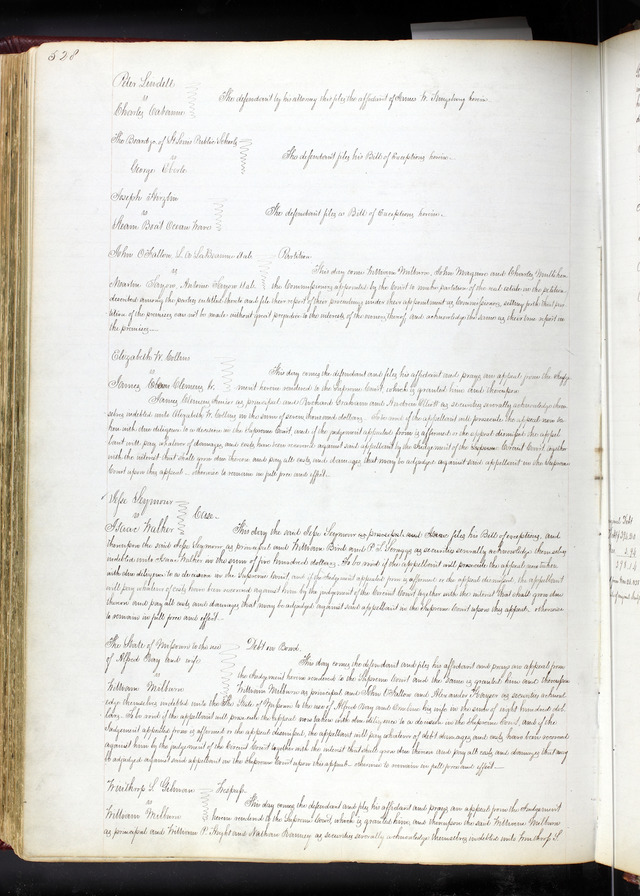 528
Peter Lindell
vs
Charles Cabanne
The defendant by his attorney this files the affidavit of James W. Kingsbury herein.
The Board &c of St Louis Public Schools
vs
George Eberle
The defendant files his Bill of Exceptions herein.
Joseph
vs
Steam Boat Ocean Wave
The defendant files a Bill of Exceptions herein.
John O'Fallon, L. A. LaBeaume et al.
vs
Partition
This day come William Milburn, John Maguire and Charles
the Commissioners appointed by the Court to make partition of the real estate in the petition
described among the parties entitled thereto and file their report of their proceedings under their appointment as Commissioners, setting forth that par-
tition of the premises can not be made without great prejudice to the interests of the owners thereof, and acknowledge the same as their true report in
the premises.
Elizabeth W. Collins
vs
James Clemens Jr.
This day comes the defendant and files his affidavit and prays an appeal from the Judg-
ment herein rendered to the Supreme Court, which is granted him and thereupon
James Clemens Junior as principal and Buchard Graham and Andrew Elliott as securities severally acknowledge them-
selves indebted unto Elizabeth W. Collins in the sum of seven thousand dollars. To be void if the appellant will prosecute the appeal now ta-
ken with due diligence to a decision in the Supreme Court, and if the judgment appealed from is affirmed or the appeal dismissed the appel-
lant will pay whatever of damages and costs have been recovered against said appellant by the Judgment of the Circuit Court together
with the interest that shall grow due thereon and pay all costs and damages that may be adjudged against said appellant in the Supreme
Court upon this appeal - otherwise to remain in full force and effect.
Jesse Seymour
vs
Isaac Walker
Case
This day the said Jesse Seymour as principal and files his Bill of exceptions, and
thereupon the said Jesse Seymour as principal and William Bird and P. L. as securities severally acknowledge themselves
indebted unto Isaac Walker in the sum of five hundred dollars. To be void if the appellant will prosecute the appeal now taken
with due diligence to a decision in the Supreme Court and if the Judgment appealed from is affirmed or the appeal dismissed, the appellant
will pay whatever of costs have been recovered against him by the judgment of the Circuit Court together with the interest that shall grow due
thereon and pay all costs and damages that may be adjudged against said appellant in the Supreme Court upon this appeal - otherwise
to remain in full force and effect.
The State of Missouri to the use
of Alfred Nay and wife
vs
William Milburn
Debt on Bond.
This day comes the defendant and files his affidavit and prays an appeal from
the Judgment herein rendered to the Supreme Court and the same is granted him and thereupon
William Milburn as principal and John O'Fallon and Alexander as securities acknowl-
edge themselves indebted unto the State of Missouri to the use of Alfred Nay and Emeline his wife in the sum of eight hundred dol-
lars. To be void if the appellant will prosecute the appeal now taken with due diligence to a decision in the Supreme Court, and if the
Judgement appealed from is affirmed or the appeal dismissed, the appellant will pay whatever of debt damages and costs have been recovered
against him by the judgement of the Circuit Court together with the interest that shall grow due thereon and pay all costs and damages that may
be adjudged against said appellant in the Supreme Court upon this appeal - otherwise to remain in full force and effect.
Winthrop S. Gilman
vs
William Milburn
Trespass
This day comes the defendant and files his affidavit and prays an appeal from the Judgement
herein rendered to the Supreme Court, which is granted him, and thereupon the said William Milburn
as principal and William P. and Nathan Ranney as securities severally acknowledge themselves indebted unto Winthrop S.